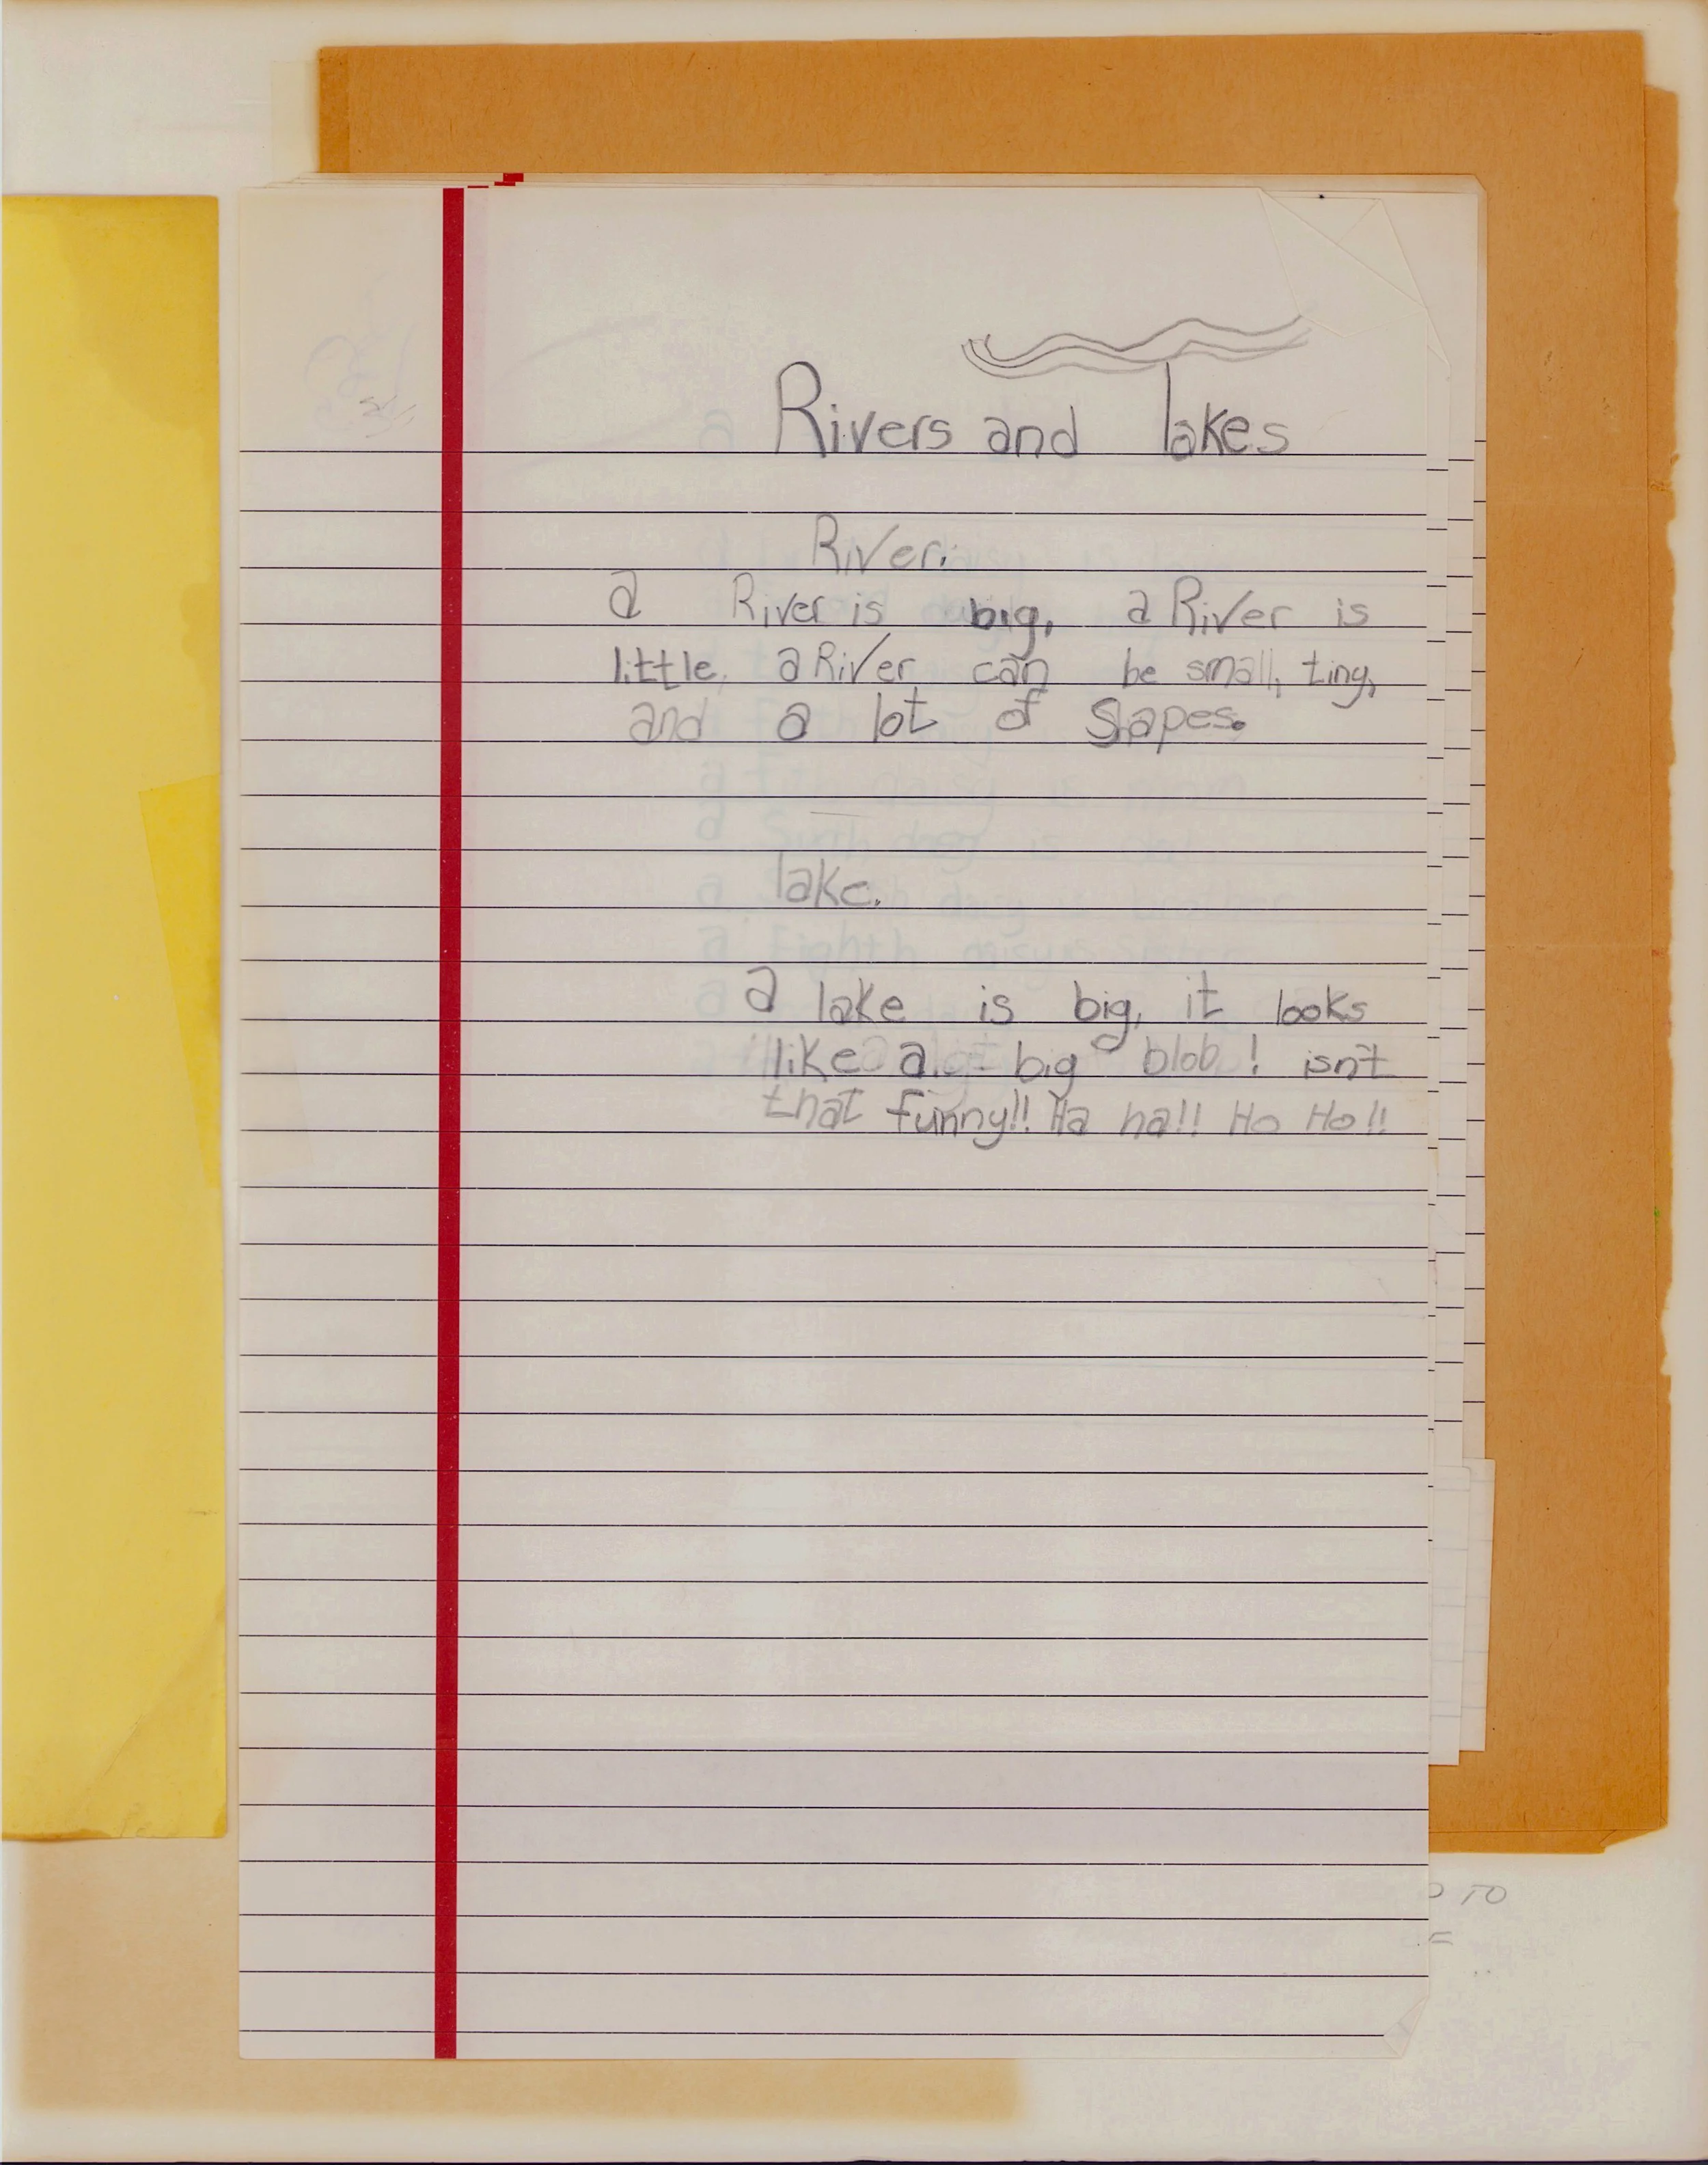 Rivers and lakes
River.
a River is big, a River is
little, a River can be small, tiny,
and a lot of Shapes.
lake.
a lake is big, it looks
like a big blob! isn't
that funny!! Ha ha!! Ho Ho!!
TO